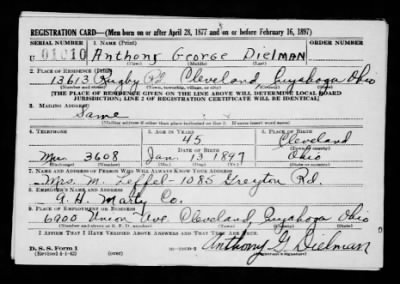 REGISTRATION CARD—(Men born on or after April 28, 1877 and on or before February 16, 1897)
SERIAL NUMBER 1. NAME (Print) ORDER NUMBER
U Anthony George Dielman
(First) (Middle) (Last)
2. PLACE OF RESIDENCE (Print)
13613 Rugby Rd. Cleveland Cuyahoga Ohio
(Number and street) (Town, township, village, or city) (County) (State)
[THE PLACE OF RESIDENCE GIVEN ON THE LINE ABOVE WILL DETERMINE LOCAL BOARD
JURISDICTION; LINE 2 OF REGISTRATION CERTIFICATE WILL BE IDENTICAL]
3. MAILING ADDRESS
Same
[Mailing address if other than place indicated on line 2. If same insert word same]
4. TELEPHONE 5. AGE IN YEARS 6. PLACE OF BIRTH
45 Cleveland
DATE OF BIRTH (Town or county)
3608 Jan. 13 1897 Ohio
(Exchange) (Number) (Mo.) (Day) (Yr.) (State or country)
7. NAME AND ADDRESS OF PERSON WHO WILL ALWAYS KNOW YOUR ADDRESS
Mrs. M. Zeffel - 1085 Greyton Rd.
8. EMPLOYER'S NAME AND ADDRESS
A. H. Marty Co.
9. PLACE OF EMPLOYMENT OR BUSINESS
6900 Union Ave. Cleveland, Cuyahoga Ohio
(Number and street or R. F. D. number) (Town) (County) (State)
I AFFIRM THAT I HAVE VERIFIED ABOVE ANSWERS AND THAT THEY ARE TRUE.
Anthony G. Dielman
D. S. S. Form 1
(Revised 4-1-42) (over) (Registrant's signature)